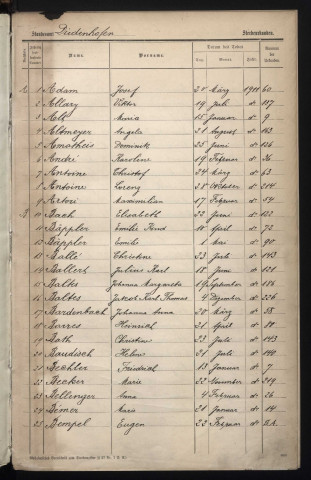 Standesamt Diedenhofen Sterbeurkunden.
Name. Vorname. Datum des Todes Nummer der Urkunden.
A 1 Adam Josef 24 März 1911 60
2 Allary Viktor 19 Juli d° 117
3 Alt Maria 15 Januar d° 9
4 Altmeyer Angela 21 August d° 163
5 Amatheis Dominik 25 Juni d° 126
6 André Karoline 19 Februar d° 36
7 Antoine Christof 24 März d° 63
8 Antoine Lorenz 28 Oktober d° 214
9 Artori Maximilian 17 Februar d° 34
B 10 Bach Elisabeth 22 Juni d° 122
11 Bäppler Emilie Kind 10 April d° 72
12 Bäppler Emilie 1 Mai d° 90
13 Ballé Christine 23 Juli d° 143
14 Ballert Julius Karl 18 Juni d° 121
15 Baltes Johanna Margareta 19 September d° 186
16 Baltes Jakob Karl Thomas 4 Dezember d° 226
17 Bardenbach Johanna Anna 20 März d° 58
18 Heinrich 21 April d° 80
19 Bath Christian 23 Juli d° 143
20 Baudisch Helene 21 Juli d° 140
21 Bechler Friedrich 13 Januar d° 7
22 Becker Marie 22 November d° 219
23 Bellinger Anna 4 Februar d° 26
24 Bemer Maria 21 Januar d° 14
25 Bempel Eugen 22 Februar d°